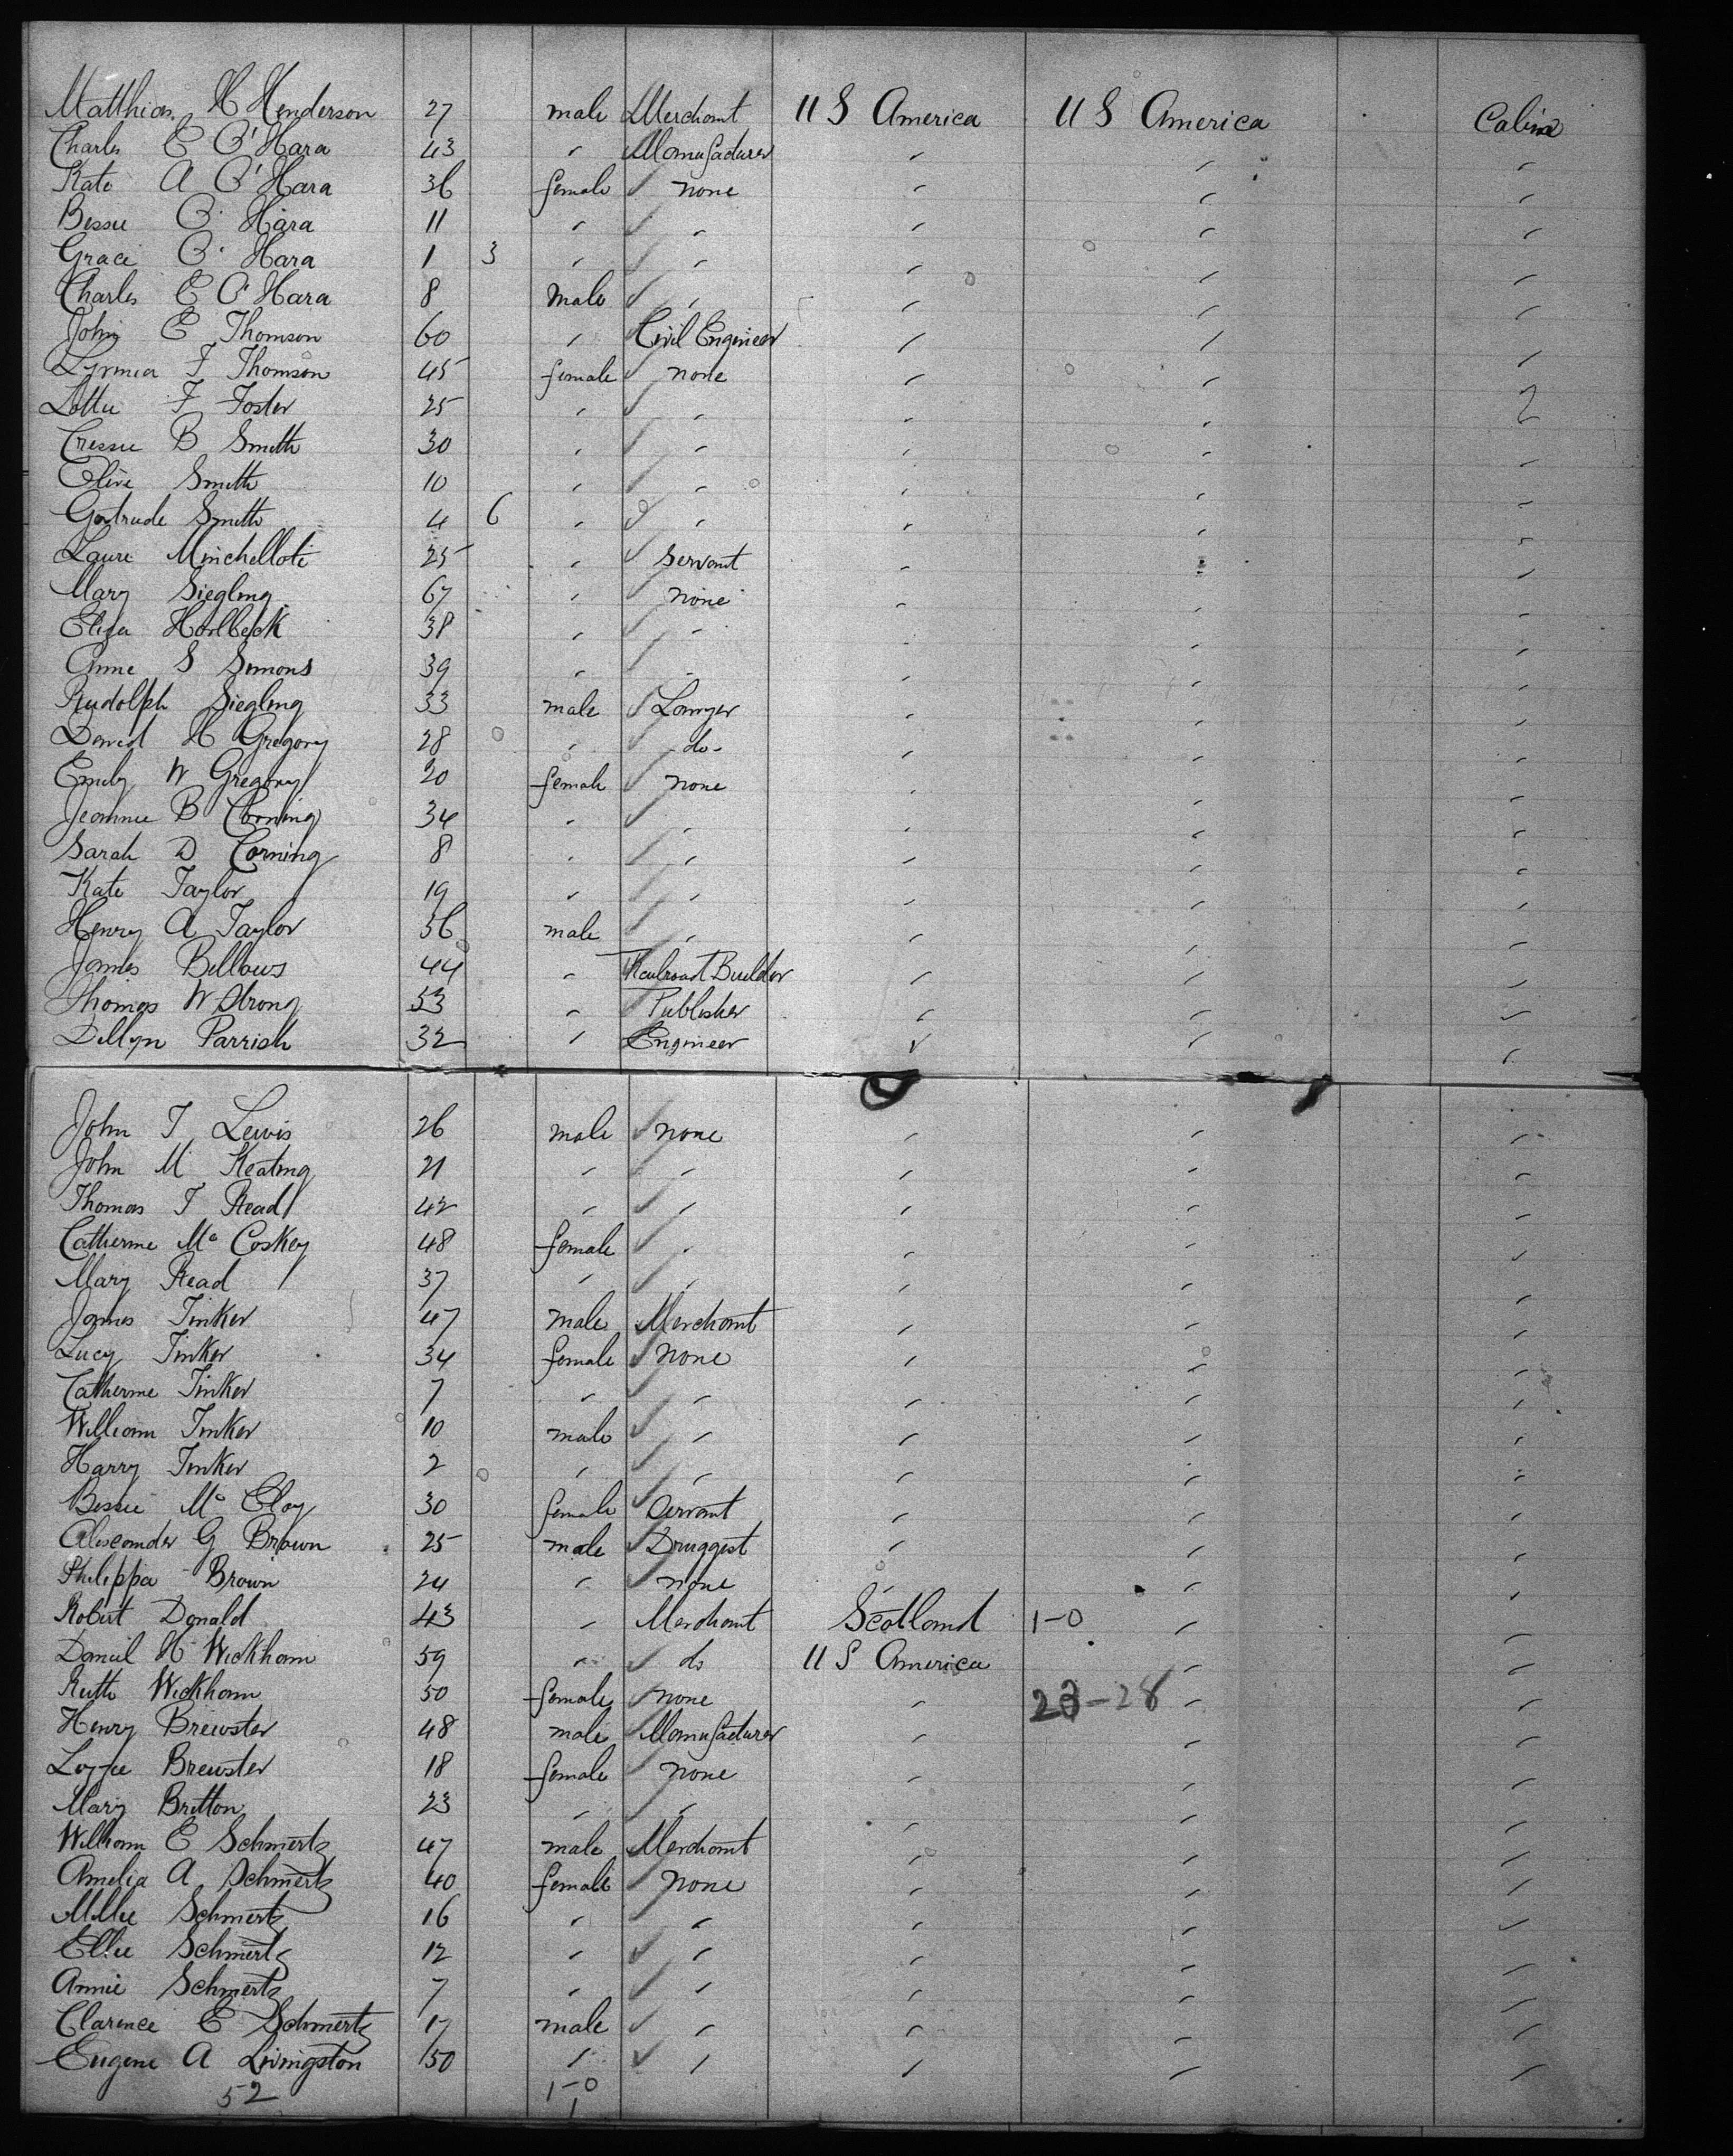 Matthias H Henderson 27 male Merchant U S America U S America Cabin
Charles E O'Hara 43 " Manufacturer " " "
Kate A O'Hara 36 female none " " "
Bessie O'Hara 11 " " " " "
Grace O'Hara 1 3 " " " " "
Charles E O'Hara 8 male " " " "
John E Thomson 60 " Civil Engineer " " "
F Thomson 45 female none " "
Lottie F Foster 25 " " " "
Cressie B Smith 30 " " " " "
Olive Smith 10 " " " " "
Gertrude Smith 4 6 " " " " "
Laure Minchellote 25 " Servant " " "
Mary Siegling 67 " none " " "
Eliza Horlbeck 38 " " " " "
Anne S Simons 39 " " " " "
Rudolph Siegling 33 male Lawyer " " "
David H Gregory 28 " -do- " " "
Emily W Gregory 20 female none " " "
Jeannie B Corning 34 " " " " "
Sarah D Corning 8 " " " " "
Kate Taylor 19 " " " " "
Henry A Taylor 36 male " " " "
James Bellows 44 " Railroad Builder " " "
Thomas W Strong 53 " Publisher " " "
Dillyn Parrish 32 " Engineer " " "
John T Lewis 26 male none " " "
John M Keating 21 " " " " "
Thomas T Read 42 " " " " "
Catherine Mc Coskey 48 female " " " "
Mary Read 37 " " " " "
James Tinker 47 male Merchant " " "
Lucy Tinker 34 female none " " "
Catherine Tinker 7 " " " " "
William Tinker 10 male " " " "
Harry Tinker 2 " " " " "
Bessie Mc Cloy 30 female Servant " " "
Alexander G Brown 25 male Druggist " " "
Philippa Brown 24 " none " " "
Robert Donald 43 " Merchant Scotland 1-0 " "
Daniel H Wickham 59 " do U S America " "
Ruth Wickham 50 female none " 23-28 " "
Henry Brewster 48 male Manufacturer " " "
Lizzie Brewster 18 female none " " "
Mary Britton 23 " " " " "
William E Schmertz 47 male Merchant " " "
Amelia A Schmertz 40 female none " " "
Millie Schmertz 16 " " " " "
Ellie Schmertz 12 " " " " "
Annie Schmertz 7 " " " " "
Clarence E Schmertz 17 male " " " "
Eugene A Livingston 50 " " " " "
52 1-0
1